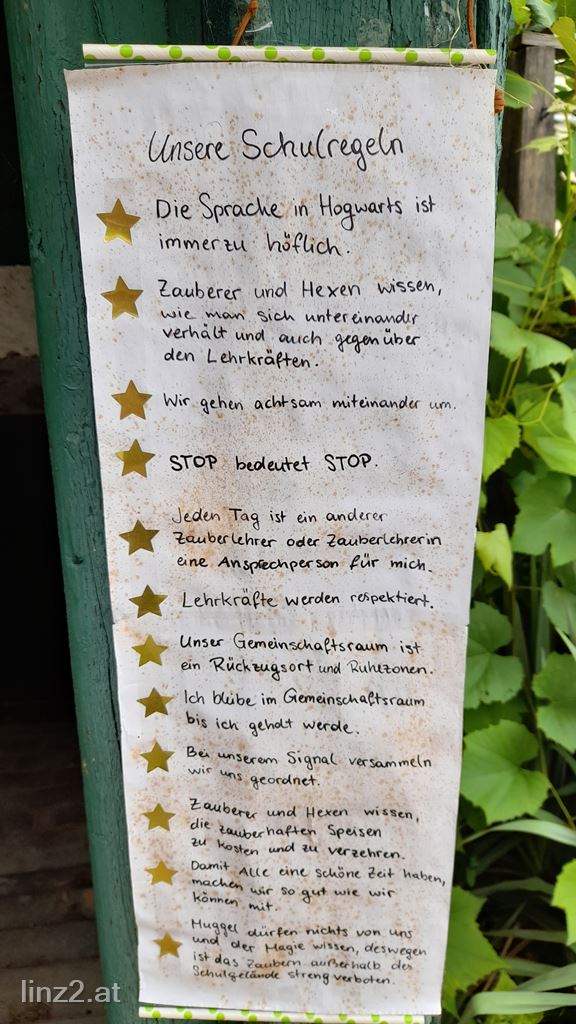 Unsere Schulregeln
Die Sprache in Hogwarts ist
immerzu höflich.
Zauberer und Hexen wissen,
wie man sich untereinander
verhält und auch gegenüber
den Lehrkräften.
Wir gehen achtsam miteinander um.
STOP bedeutet STOP.
Jeden Tag ist ein anderer
Zauberlehrer oder Zauberlehrerin
eine Ansprechperson für mich.
Lehrkräfte werden respektiert.
Unser Gemeinschaftsraum ist
ein Rückzugsort und Ruhezonen.
Ich bleibe im Gemeinschaftsraum
bis ich geholt werde.
Bei unserem Signal versammeln
wir uns geordnet.
Zauberer und Hexen wissen,
die zauberhaften Speisen
zu kosten und zu verzehren.
Damit ALLE eine schöne Zeit haben,
machen wir so gut wie wir
können mit.
Muggel dürfen nichts von uns
und der Magie wissen, deswegen
ist das Zaubern außerhalb des
Schulgelände streng verboten.
linz2.at